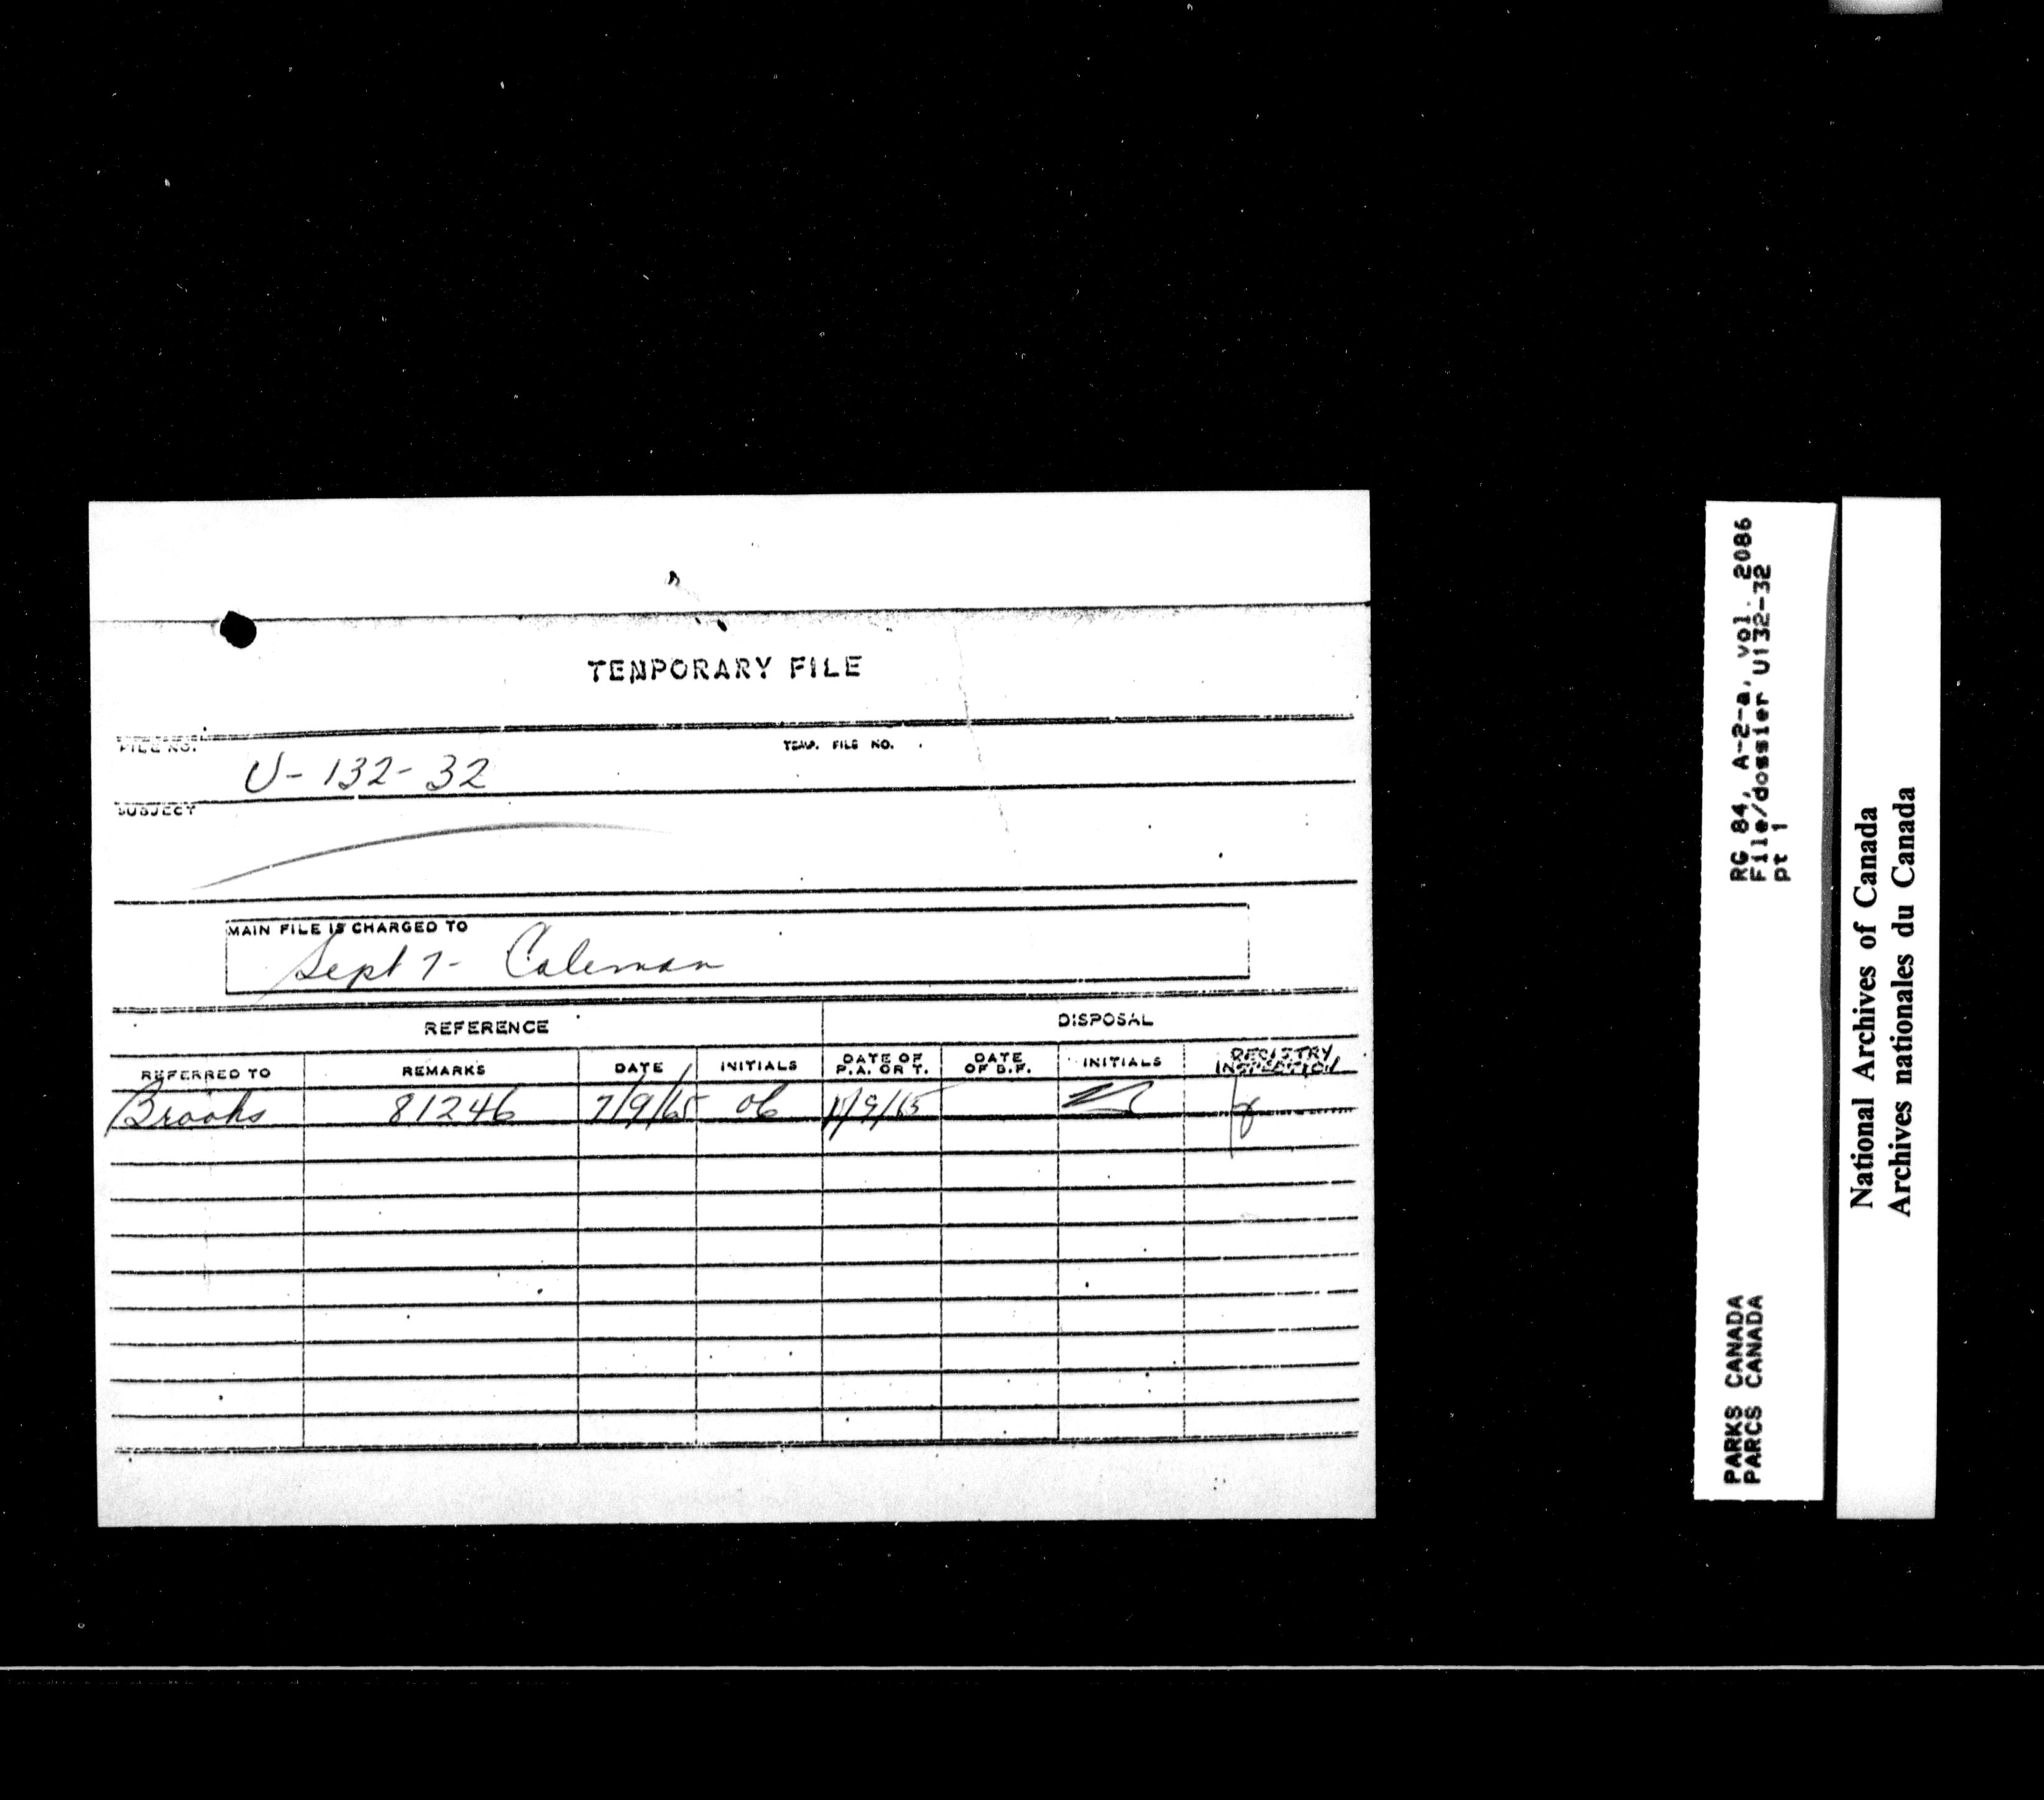 TEMPORARY FILE
FILE NO. TEMP. FILE NO.
U-132-32
SUBJECT
MAIN FILE IS CHARGED TO
Sept 7- Coleman
REFERENCE DISPOSAL
REFERRED TO REMARKS DATE INITIALS DATE OF P.A. OR T. DATE OF B.F. INITIALS REGISTRY INSPECTION
Brooks 81246 7/9/65
RG 84, A-2-a, vol. 2086
File/dossier U132-32
pt 1
PARKS CANADA
PARCS CANADA
National Archives of Canada
Archives nationales du Canada